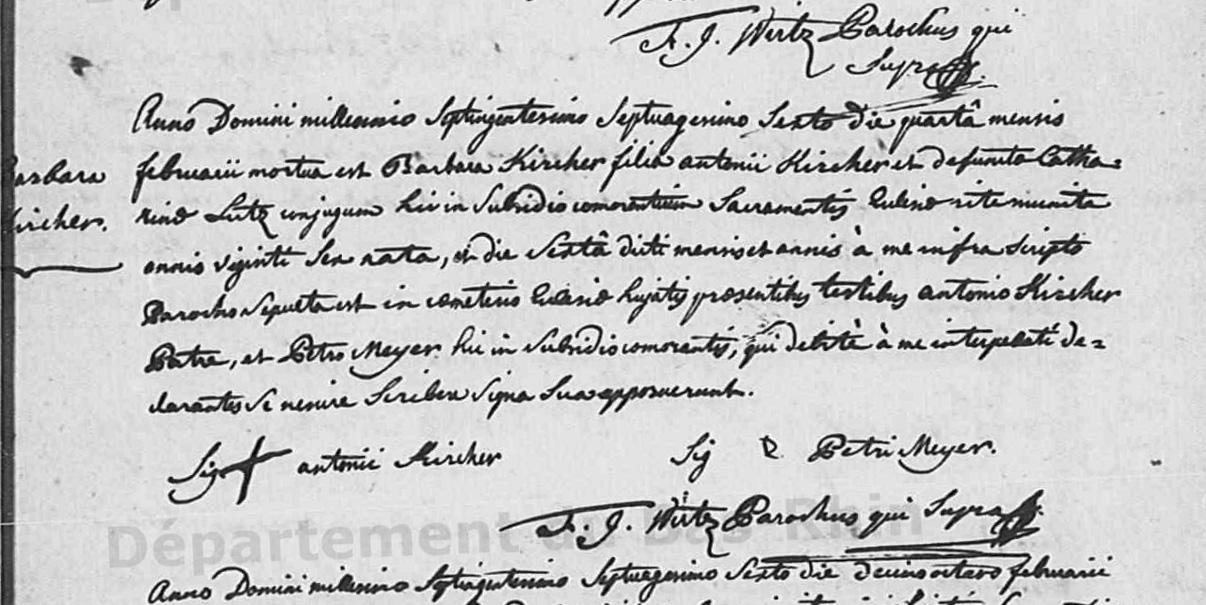 F. J. Wirtz Parochus qui
Supra
Anno Domini millesimo Septingentesimo Septuagesimo Sexto die quartâ mensis
februarii mortua est Barbara Kircher filia antonii Kircher et defuncta Catha=
Barbara
rina Lutz conjugum hic in Subsidio comorantium Sacramentis Eclesia rite munita
Kircher.
annis viginti Sex nata, et die Sextâ dicti mensis et annis à me infra Scripto
Parocho Sepulta est in cometerio Eclesia hujatis presentibus testibus antonio Kircher
Patre, et Petro Meyer hic in Subsidio comorantis, qui debitè à me interpelati de=
clarantes Se nescire Scribere Signa Sua apposuerunt.
Sig + antonii Kircher Sig Petri Meyer.
Département du Bas-Rhin
F. J. Wirtz Parochus qui Supra
Anno Domini millesimo Septingentesimo Septuagesimo Sexto die decimo octavo februarii